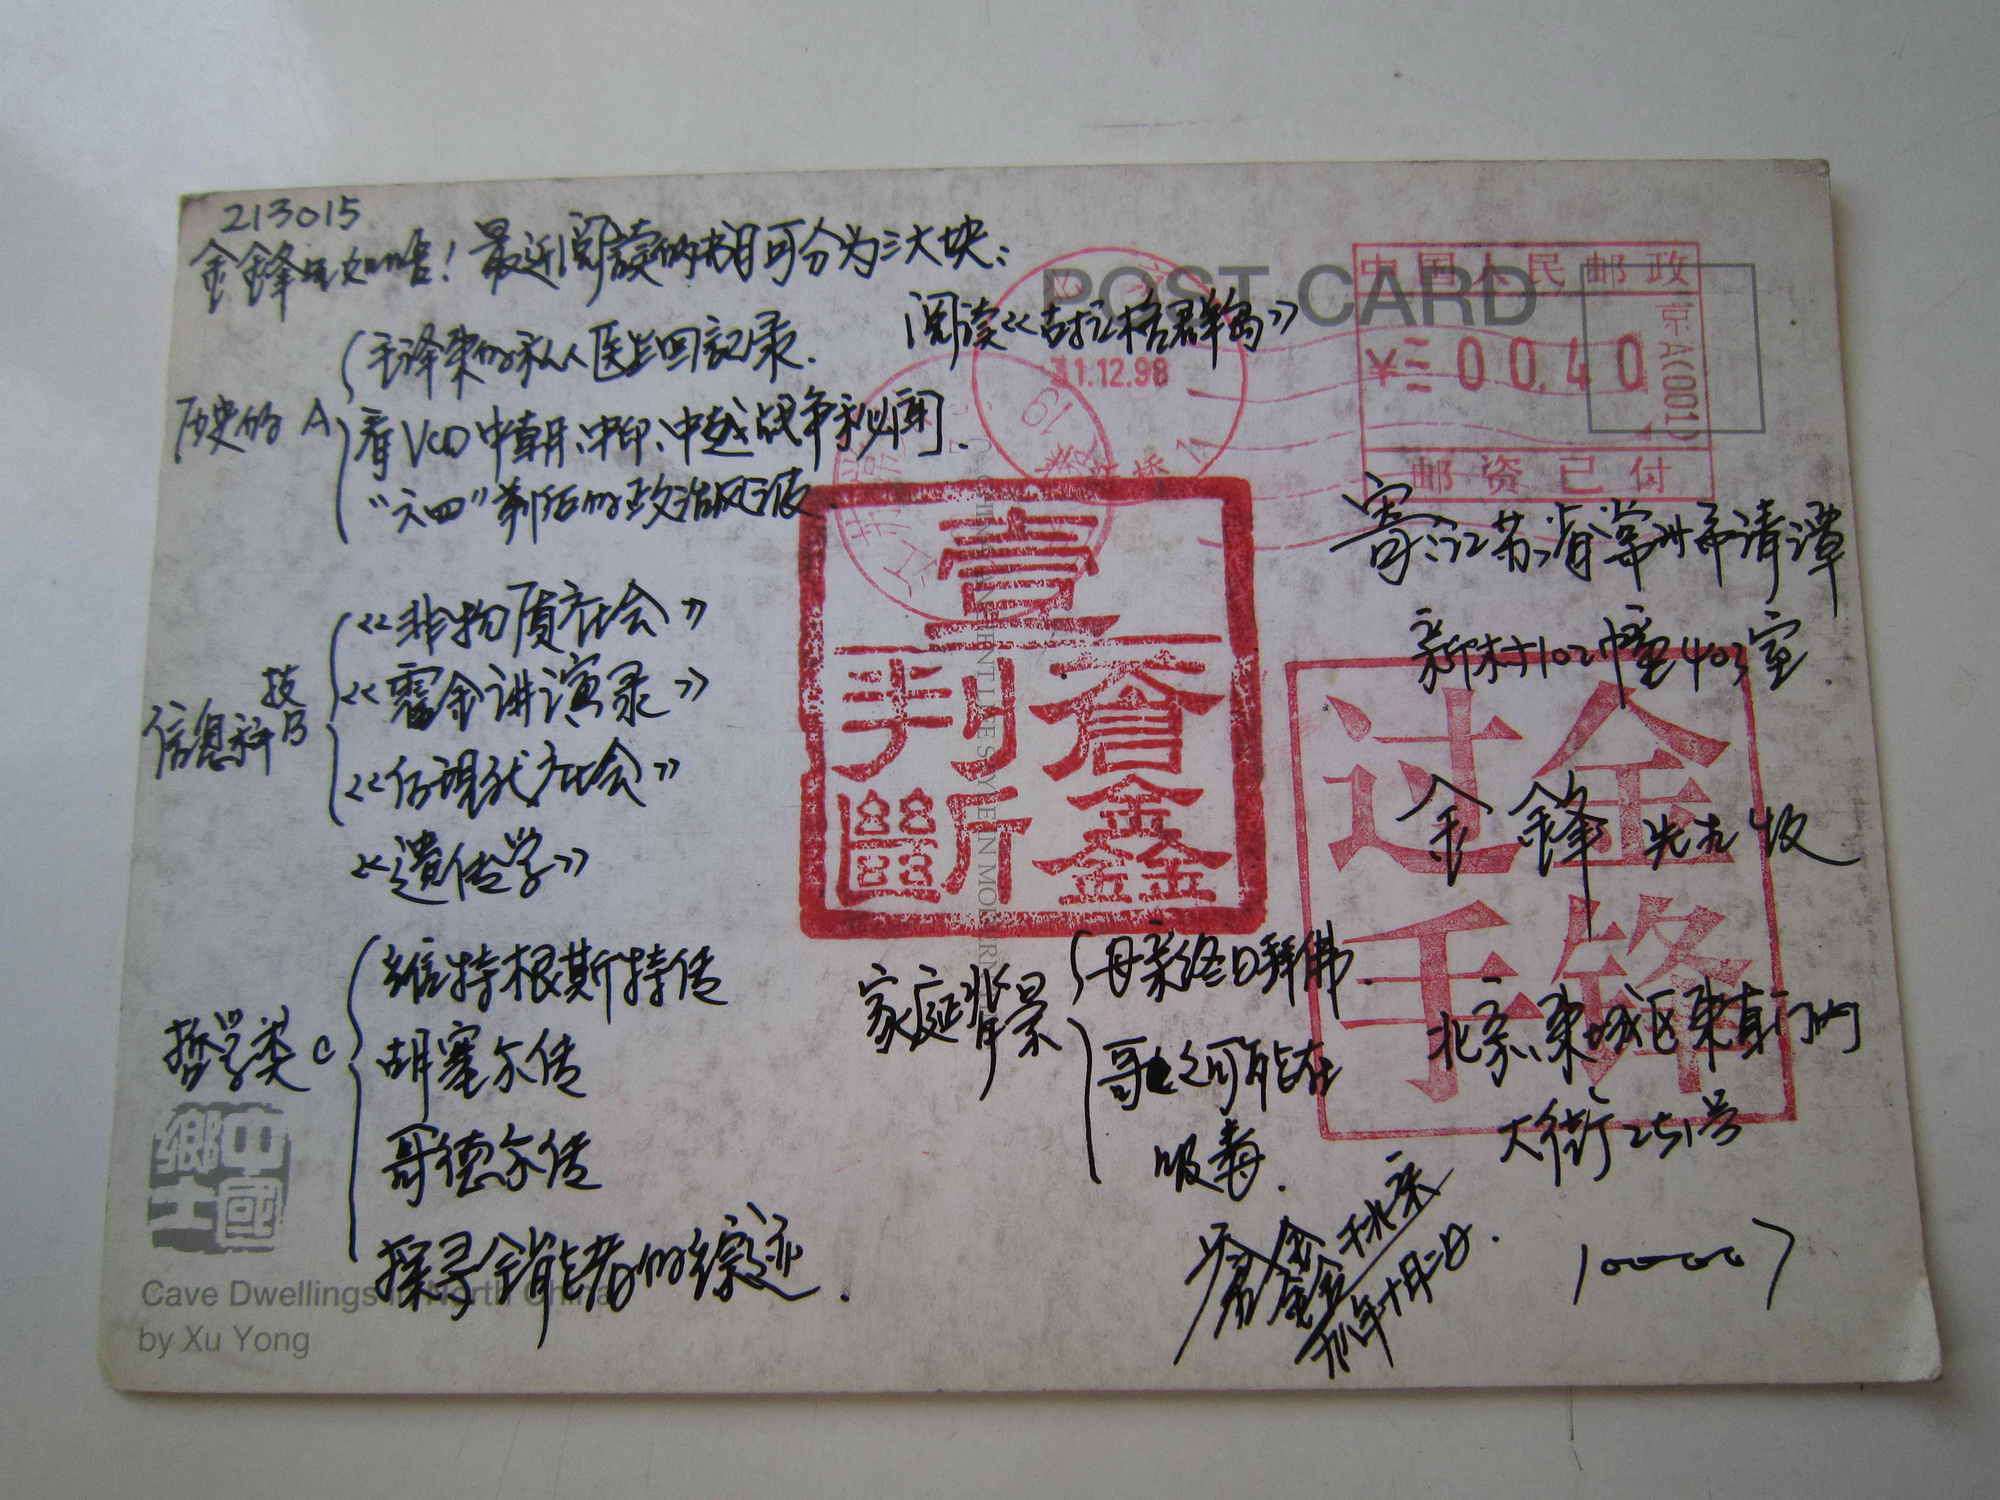 213015
金鋒
最近阅读的书目可分为三大块:
阅读《古拉格群岛》
历史的 A
毛泽东的私人医生回忆录.
看VCD中朝、中印、中越战争秘闻.
“六四”前后的政治风波.
信息科技 B
《非物质社会》
《霍金讲演录》
《后現代社会》
《遗传学》
哲学类 C
維特根斯特传
胡塞尔传
哥德尔传
探寻全能者的综迹.
家庭背景
母亲终日拜佛.
哥之可能在
吸毒.
POST CARD
中国人民邮政
京A(001)
¥ 00.40
邮资已付
31.12.98
寄:江苏省常州市清潭
新村102幢403室.
金鋒 先生 收
北京、东城区东直门内
大街251号
100007
壹
判斷
鑫
金锋
过手
于北京
中國
鄉土
Cave Dwellings in North China
by Xu Yong